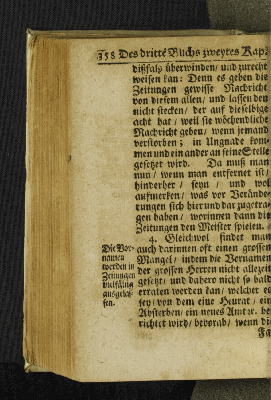 358 Des dritte Buchs zweytes Kap.
dißfals überwinden / und zurecht
weisen kan: Denn es geben die
Zeitungen gewisse Nachricht
von diesem allen / und lassen den
nicht stecken / der auf dieselbige
acht hat / weil sie wöchendliche
Nachricht geben / wenn jemand
verstorben ; in Ungnade kom-
men und ein ander an seine Stelle
gesetzet wird. Da muß man
nun / wenn man entfernet ist /
hinderher / seyn / und wol
aufmerken / was vor Verände-
rungen sich hier und dar zugetra-
gen haben / worinnen dann die
Zeitungen den Meister spielen.
4. Gleichwol findet man
auch darinnen oft einen grossen
Mangel / indem die Vornamen
der grossen Herren nicht allezeit
gesetzt / und dahero nicht so bald
erraten werden kan / welcher es
sey / von dem eine Heurat / ein
Absterben / ein neues Amt
richtet wird / bevorab / wenn die
Die Vor-
namen
werden in
Zeitungen
vielfältig
ausgelas-
sen.